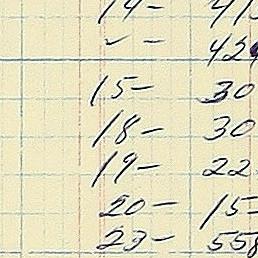 14- 415
" - 429
15- 30
18- 30
19- 22
20- 15-
23- 558